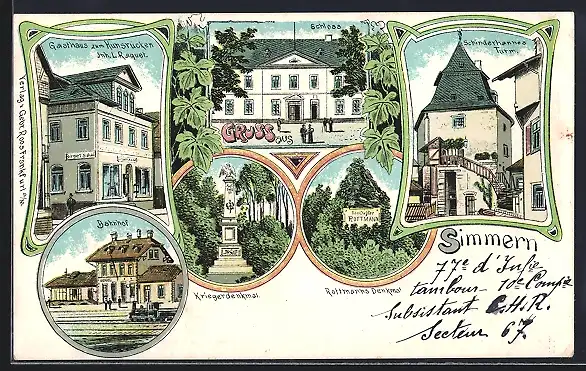 Gasthaus zum Hunsrücken
Inh. L. Raquet.
Schloss
Schinderhannes
Turm.
Verlag v. Gebr. Roos Frankfurt a/M.
GRUSS aus
Simmern
Bahnhof
ROTTMANN
Kriegerdenkmal.
Rottmanns Denkmal
77e d'Infie
tambour 10e Compie
Subsistant C.H.R.
Secteur 67.